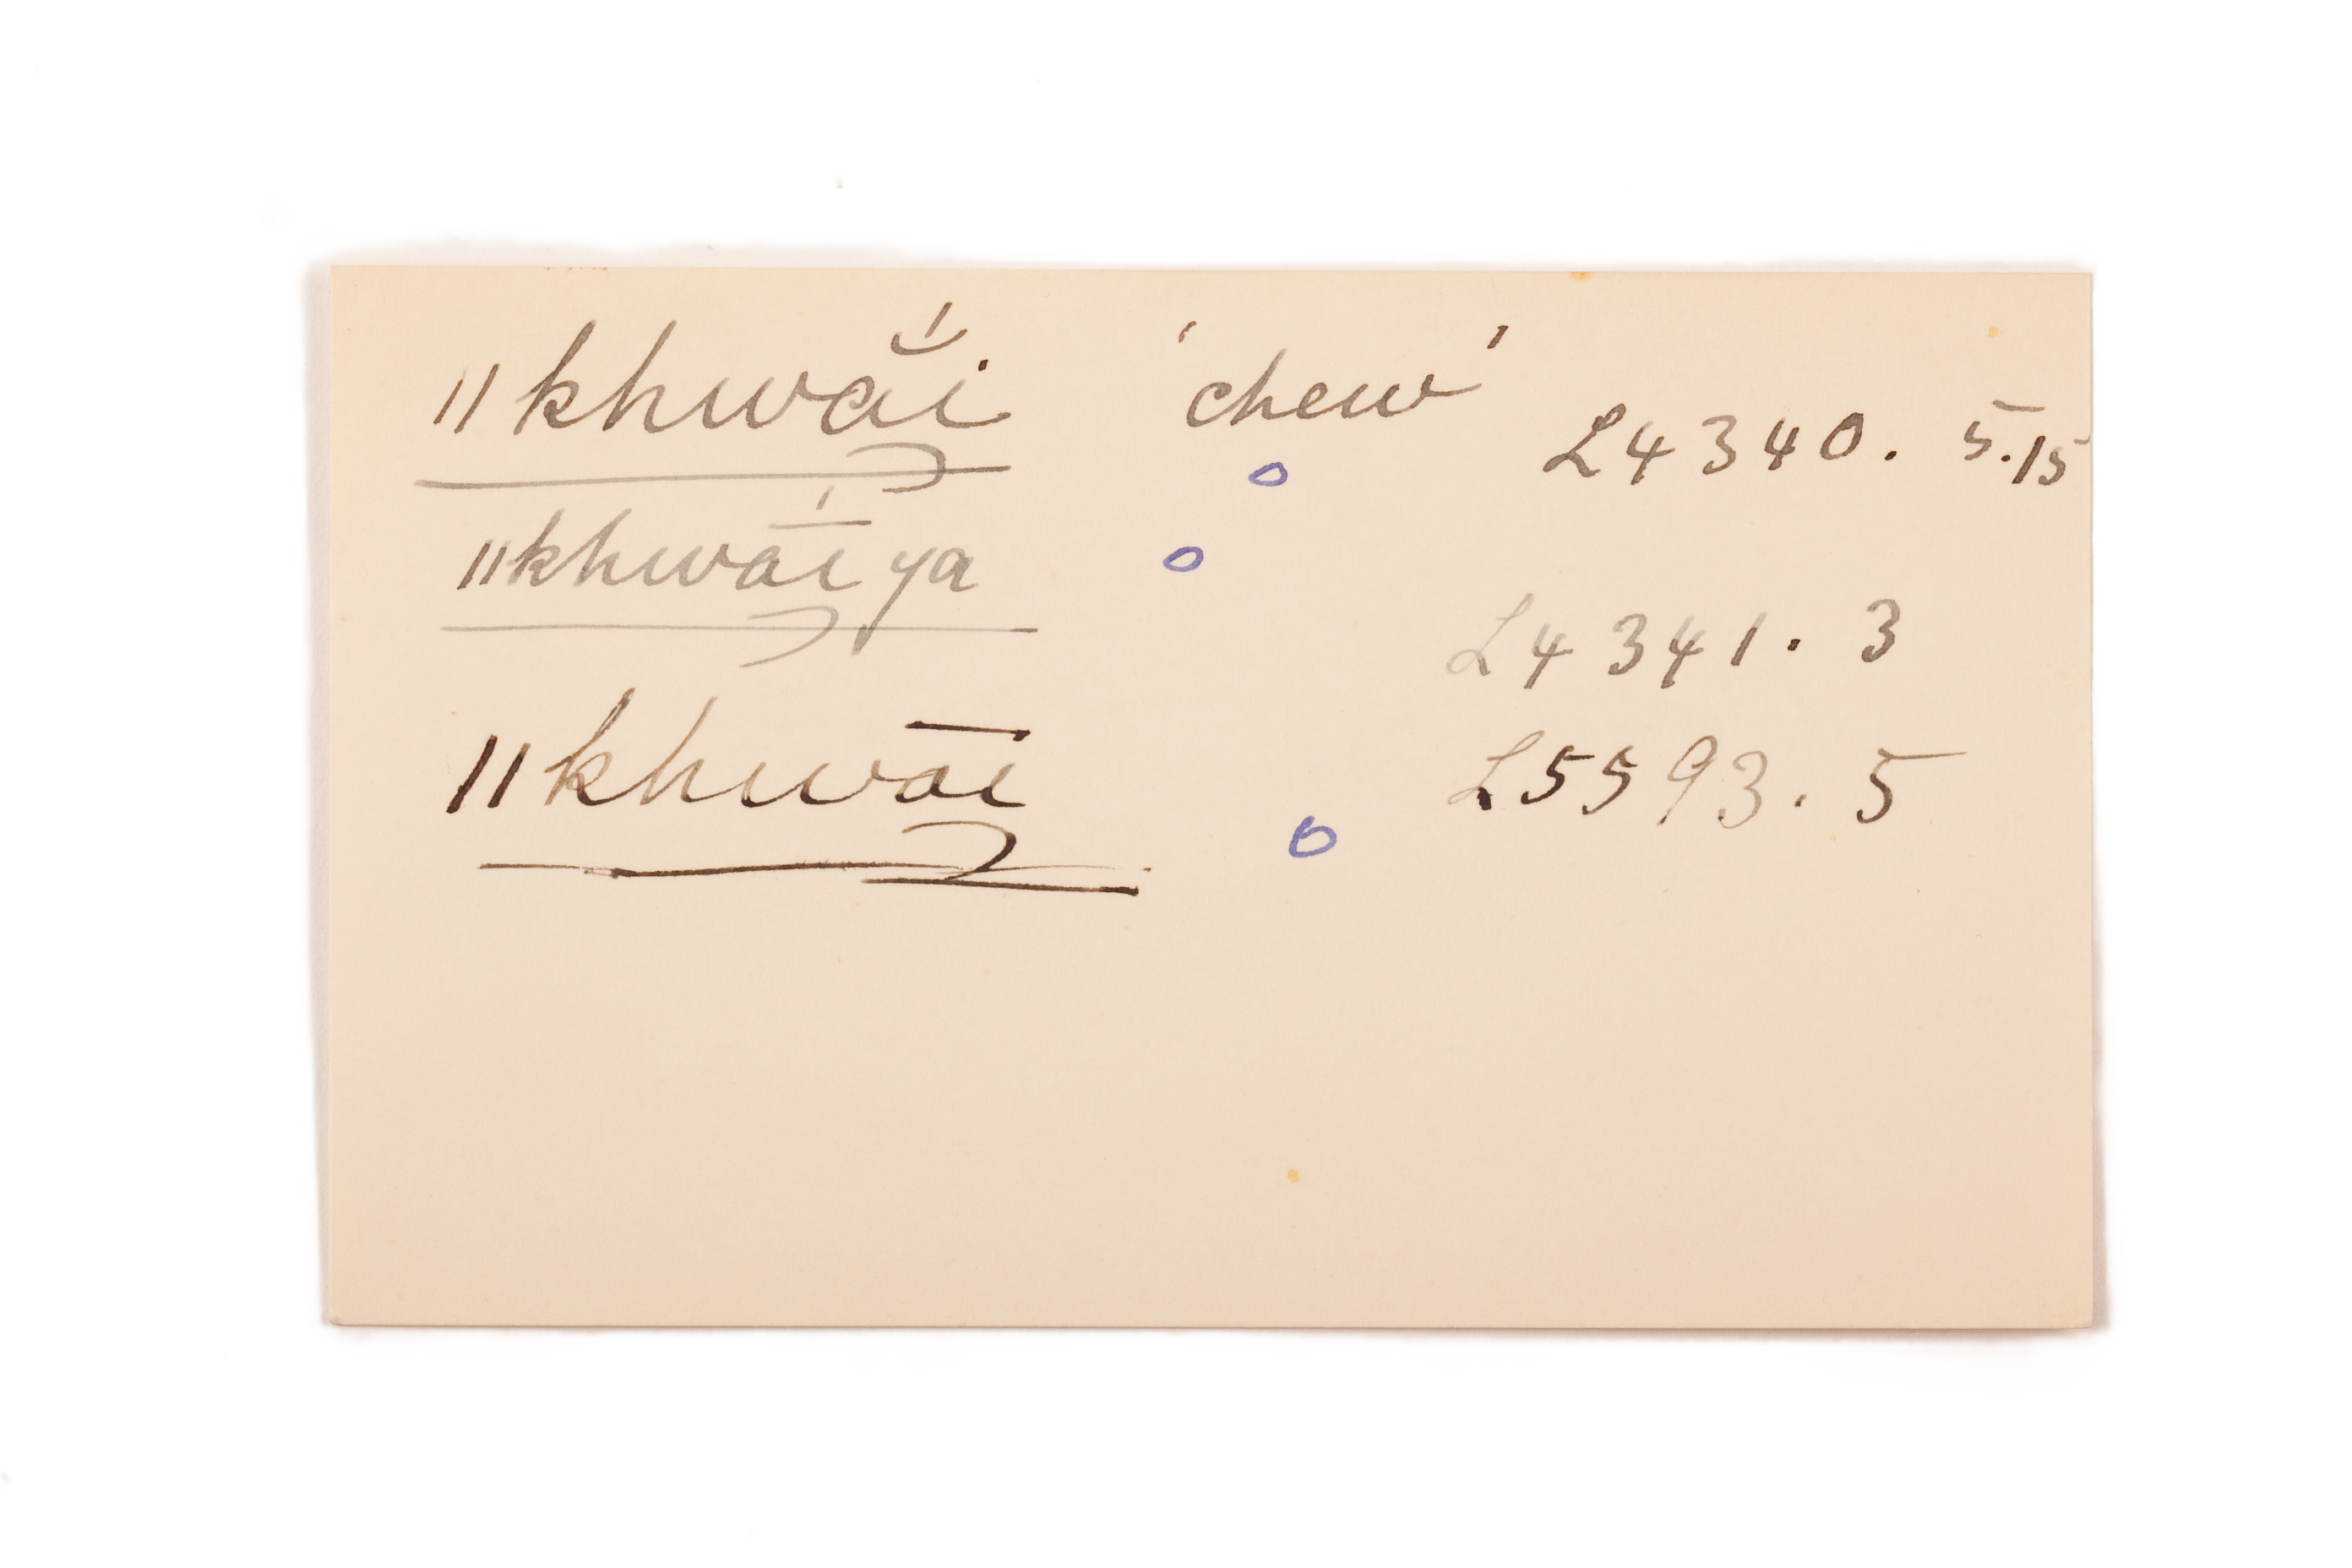 ǁkhwắi 'chew' L4340. 5.15
ǁkhwā́i ya L4341. 3
ǁkhwāi L5593. 5